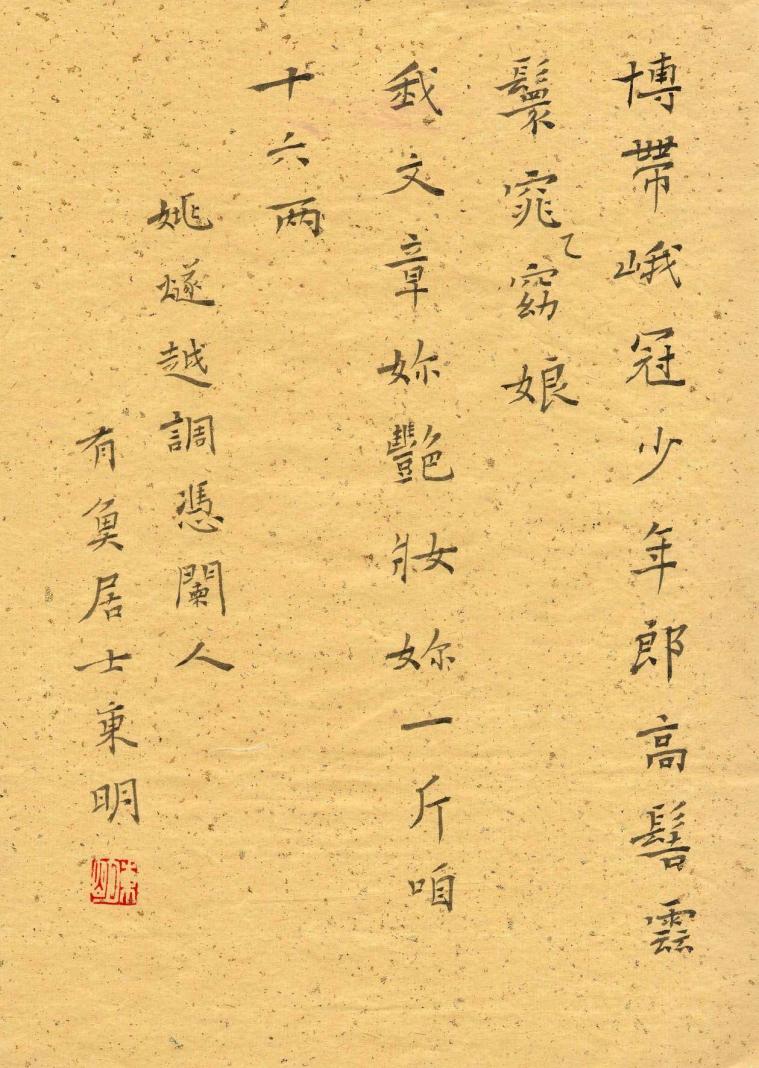 博帶峨冠少年郎高髻雲
鬟窕乙窈娘
我文章妳艷妝妳一斤咱
十六两
姚燧越調憑闌人
有魚居士東明